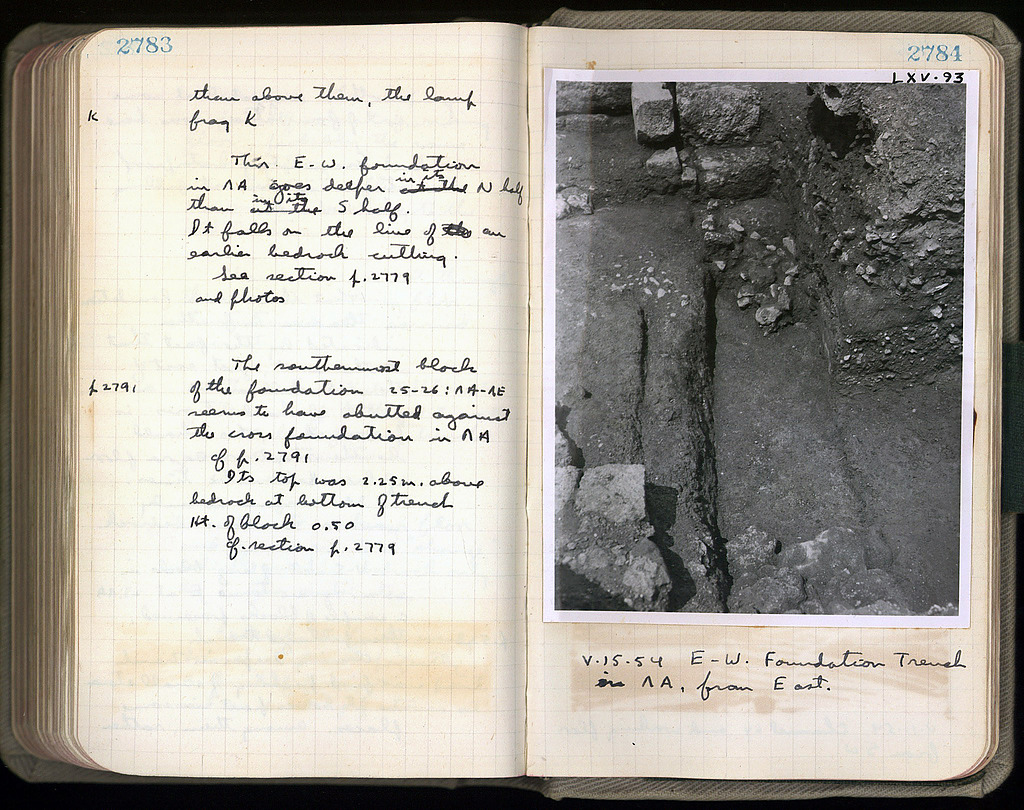 2783
than above them, the lamp
K frag K
This E-W. foundation
in ΛA goes deeper in its N half
than in its S half.
It falls on the line of an
earlier bedrock cutting.
See section p.2779
and photos
The southernmost block
p 2791 of the foundation 25-26:ΛA-ΛE
seems to have abutted against
the cross foundation in ΛA
cf p.2791
Its top was 2.25m. above
bedrock at bottom of trench
Ht. of block 0.50
cf. section p.2779
2784
LXV-93
V.15.54 E-W. Foundation Trench
in ΛA, from East.